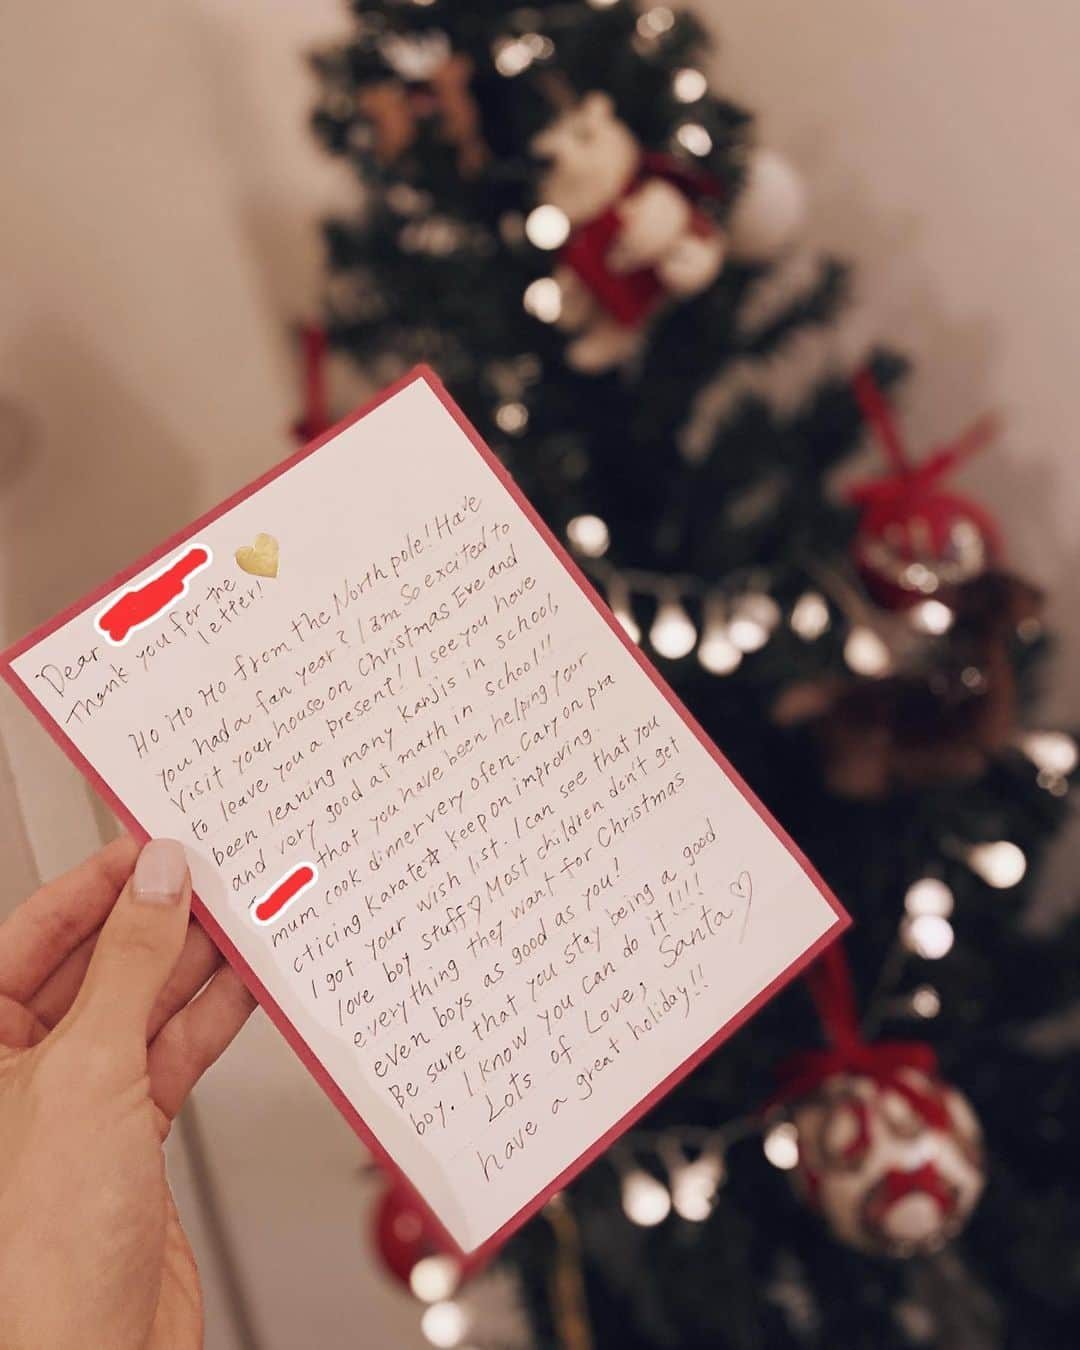 Dear
Thank you for the
letter!
Ho Ho Ho from the North pole! Have
you had a fan year? I am so excited to
visit your house on Christmas Eve and
to leave you a present! I see you have
been leaning many Kanjis in school,
and very good at math in school!!
that you have been helping your
mum cook dinner very ofen. Cary on pra
cticing Karate☆ keep on improving.
I got your wish list. I can see that you
love boy stuff♡ Most children don't get
everything they want for Christmas
even boys as good as you!
Be sure that you stay being a good
boy. I know you can do it!!!!
Lots of Love, Santa♡
have a great holiday!!